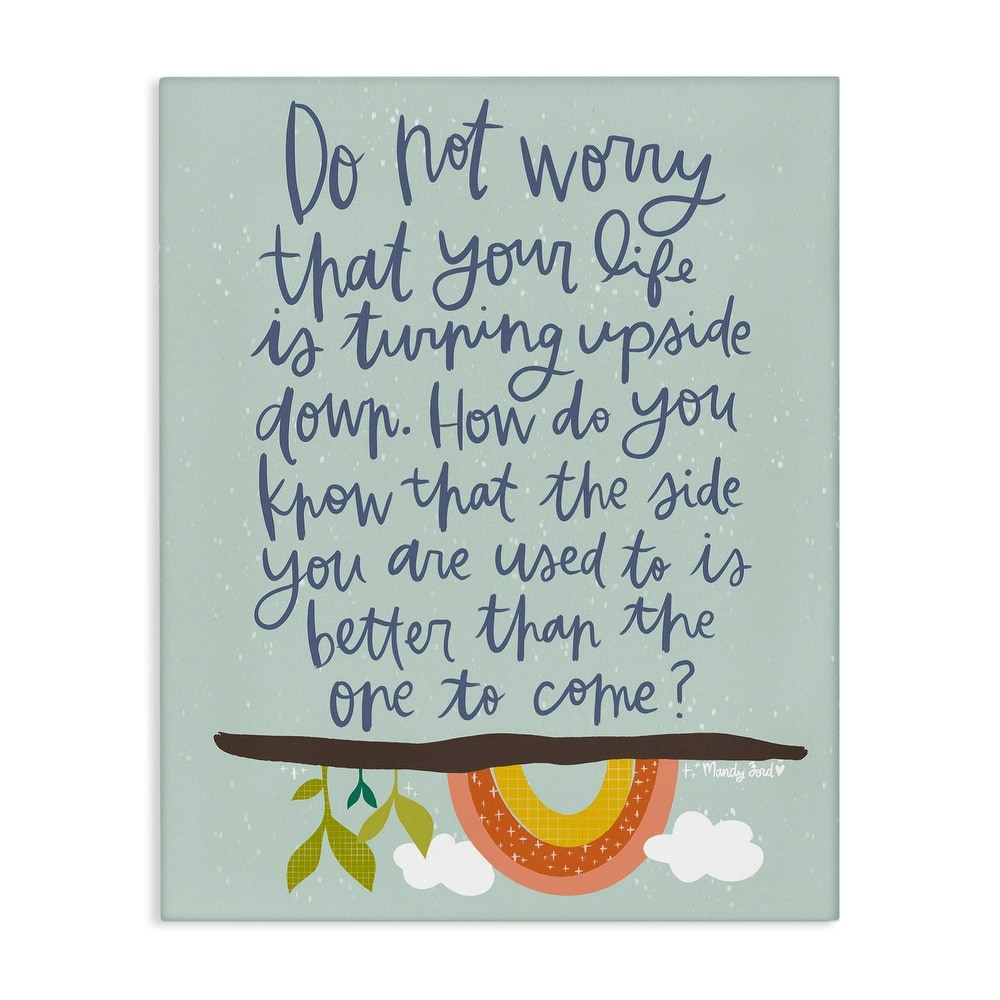 Do not worry
that your life
is turning upside
down. How do you
know that the side
you are used to is
better than the
one to come?
Mandy Ford